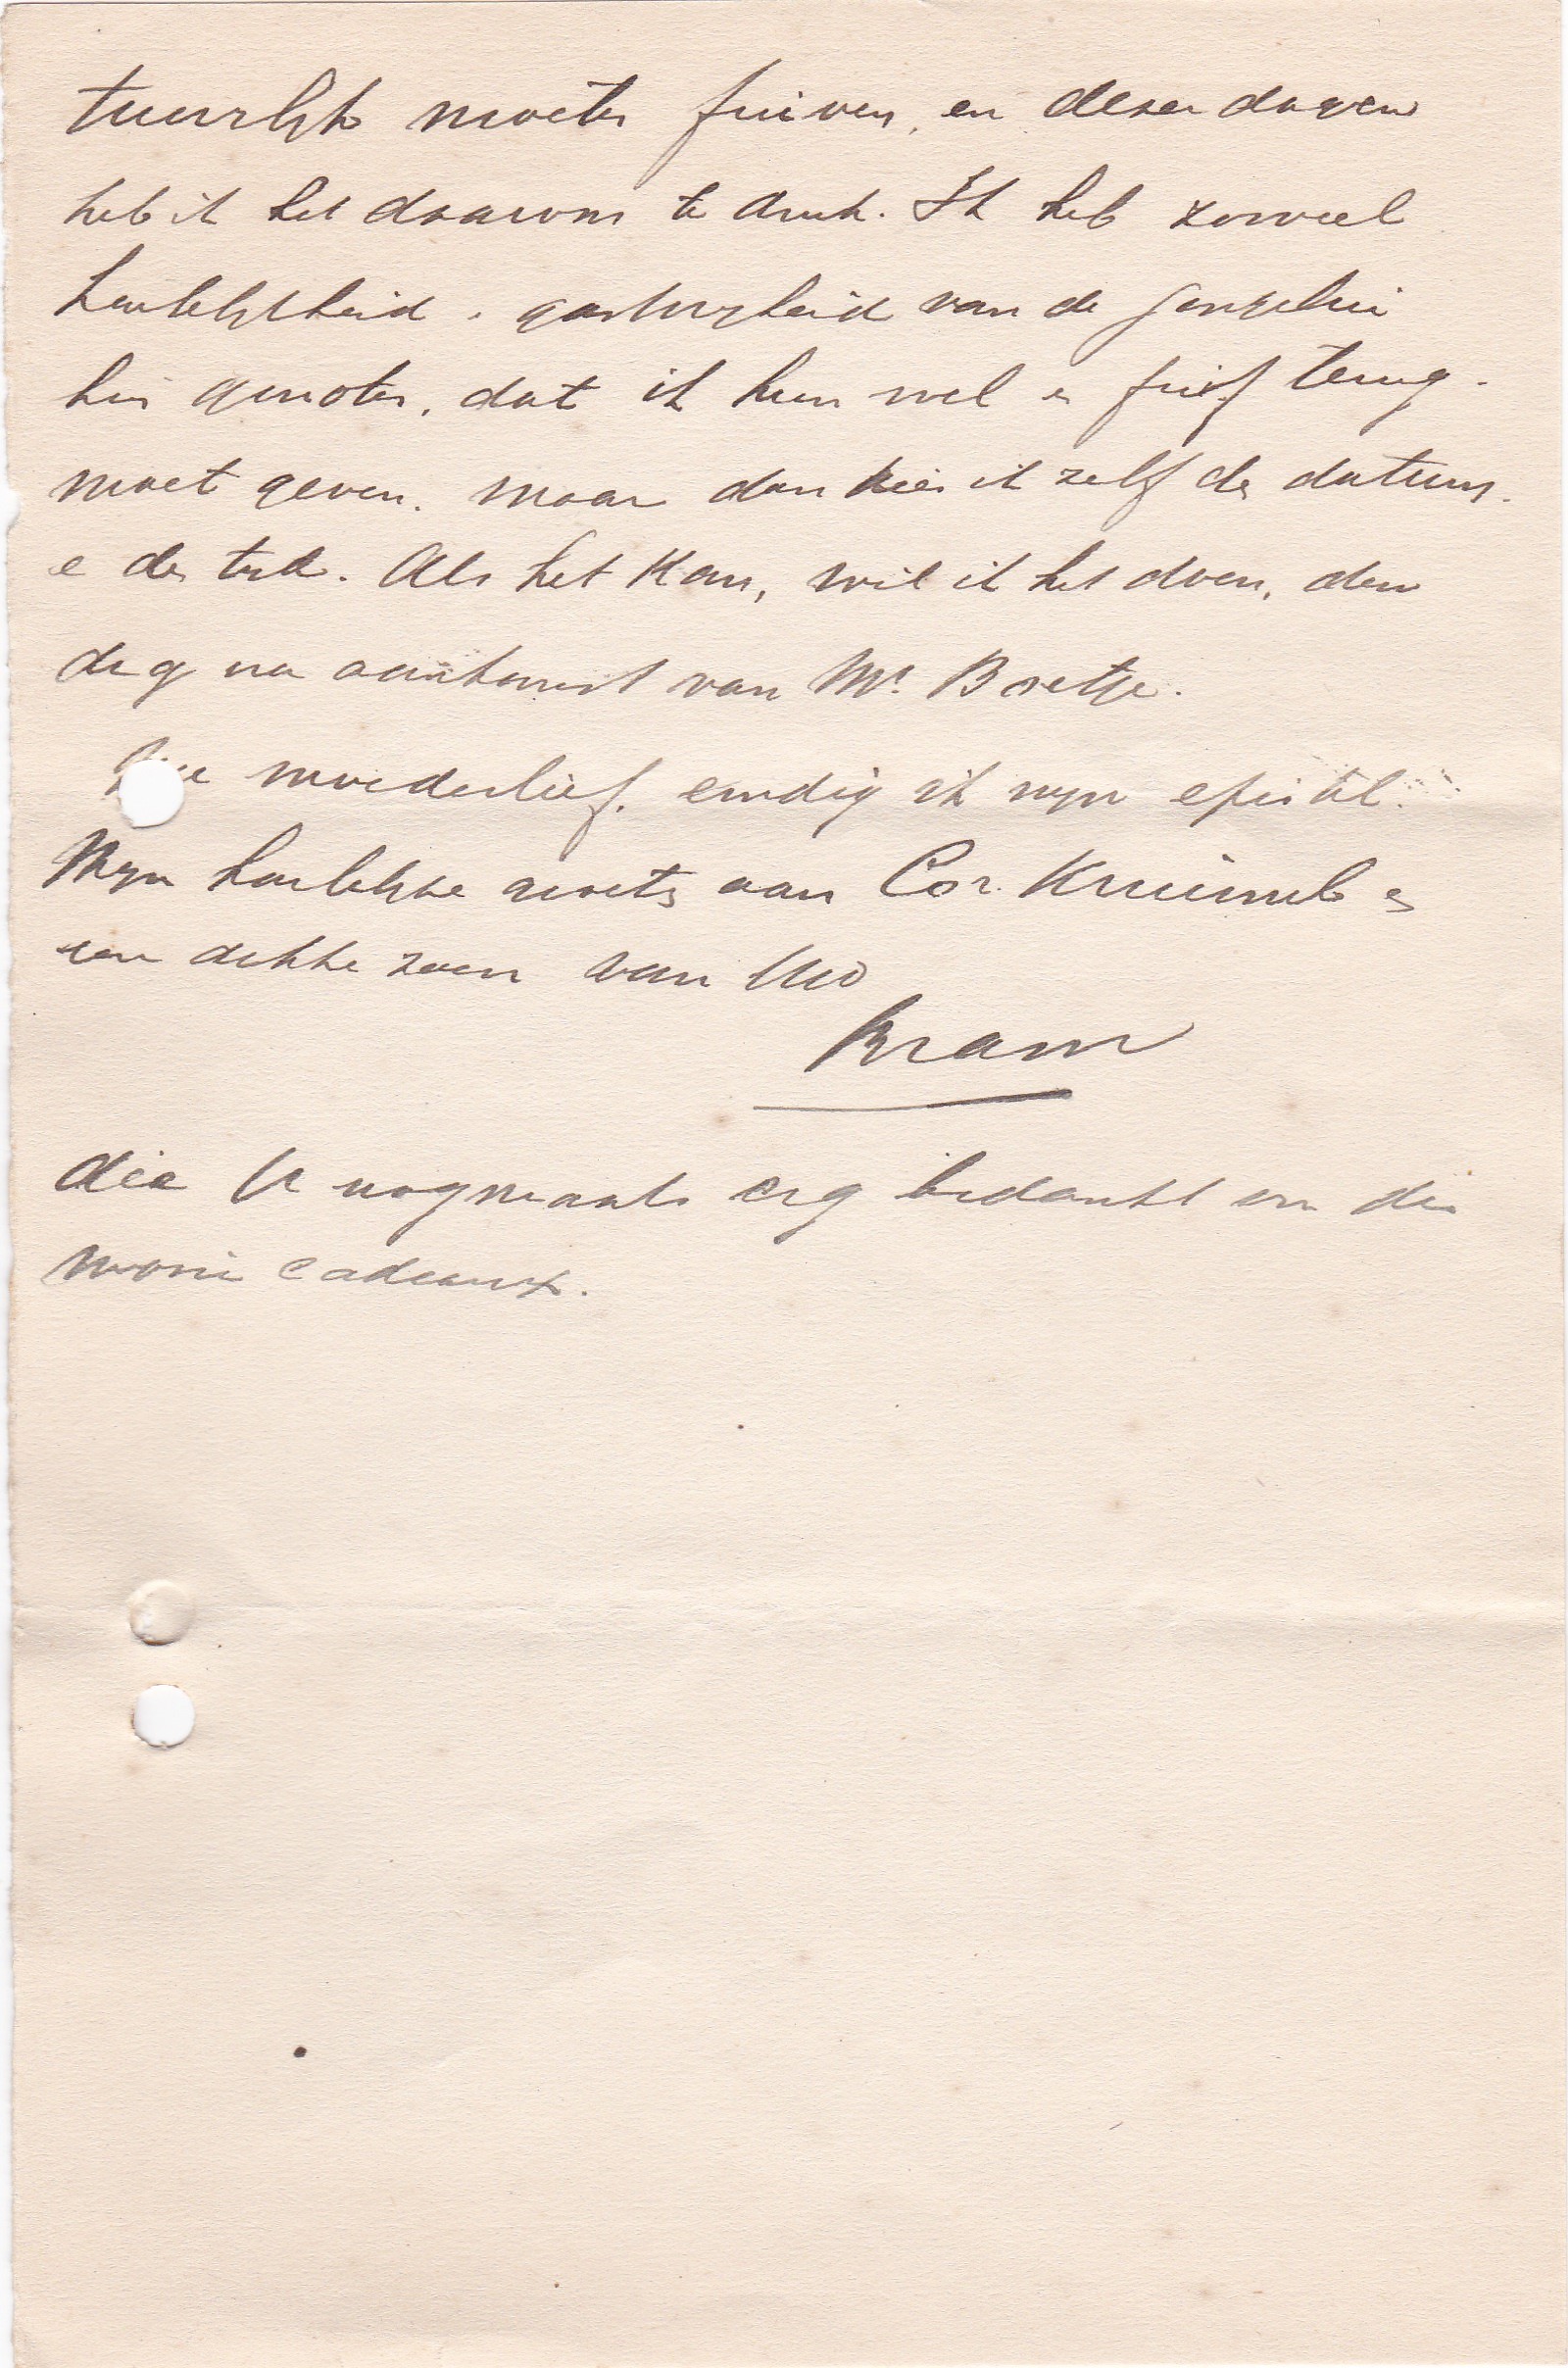 tuurlijk moeten fuiven, en dezer dagen
heb ik het daarvoor te druk. Ik heb zooveel
hartelijkheid . gastvrijheid van de jongelui
hier genoten, dat ik hun wel en fuif terug-
moet geven. maar dan kies ik zelf de datum.
e de tijd. Als het kan, wil ik het doen, den
dag na aankomst van Mr. Boetje.
moederlief, eindig ik mijn epistel.
Mijn hartelijke groeten aan Cor. Kruimel en
een dikke zoen van Uw
Bram
die U nogmaals erg bedankt om de
mooie cadeaux.